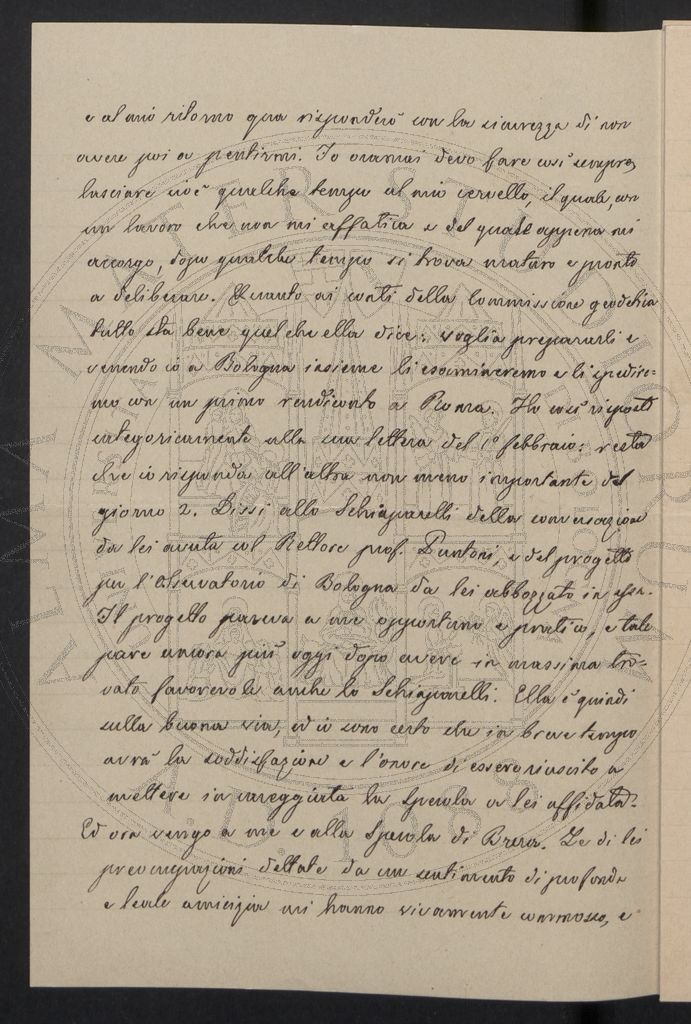 e al mio ritorno qua risponderò con la sicurezza di non
avere poi a pentirmi. Io oramai devo fare così sempre,
lasciare cioè qualche tempo al mio cervello, il quale, con
un lavoro che non mi affatica e del quale appena mi
accorgo, dopo qualche tempo si trova maturo e pronto
a deliberare. Quanto ai conti della Commissione geodetica
tutto sta bene quel che ella dice: voglia prepararli e
venendo io a Bologna insieme li esamineremo e li spedire=
mo con un primo rendiconto a Roma. Ho così risposto
categoricamente alla sua lettera del 1° febbraio: resta
che io risponda all'altra non meno importante del
giorno 2. Dissi allo Schiaparelli della conversazione
da lei avuta col Rettore prof. Puntoni, e del progetto
per l'Osservatorio di Bologna da lei abbozzato in essa.
Il progetto pareva a me opportuno e pratico, e tale
pare ancora più oggi dopo avere in massima tro=
vato favorevole anche lo Schiaparelli. Ella è quindi
sulla buona via, ed io sono certo che in breve tempo
avrà la soddisfazione e l'onore di essere riuscito a
mettere in careggiata la Specola a lei affidata.
Ed ora vengo a me e alla Specola di Brera. Le di lei
preoccupazioni dettate da un sentimento di profonda
e leale amicizia mi hanno vivamente commosso, e
ALMA MATER STUDIORUM
A.D. 1088